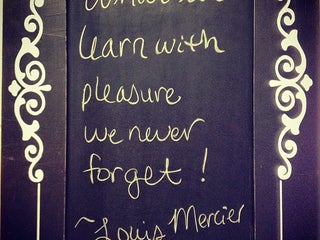 learn with
pleasure
we never
forget !
~Louis Mercier